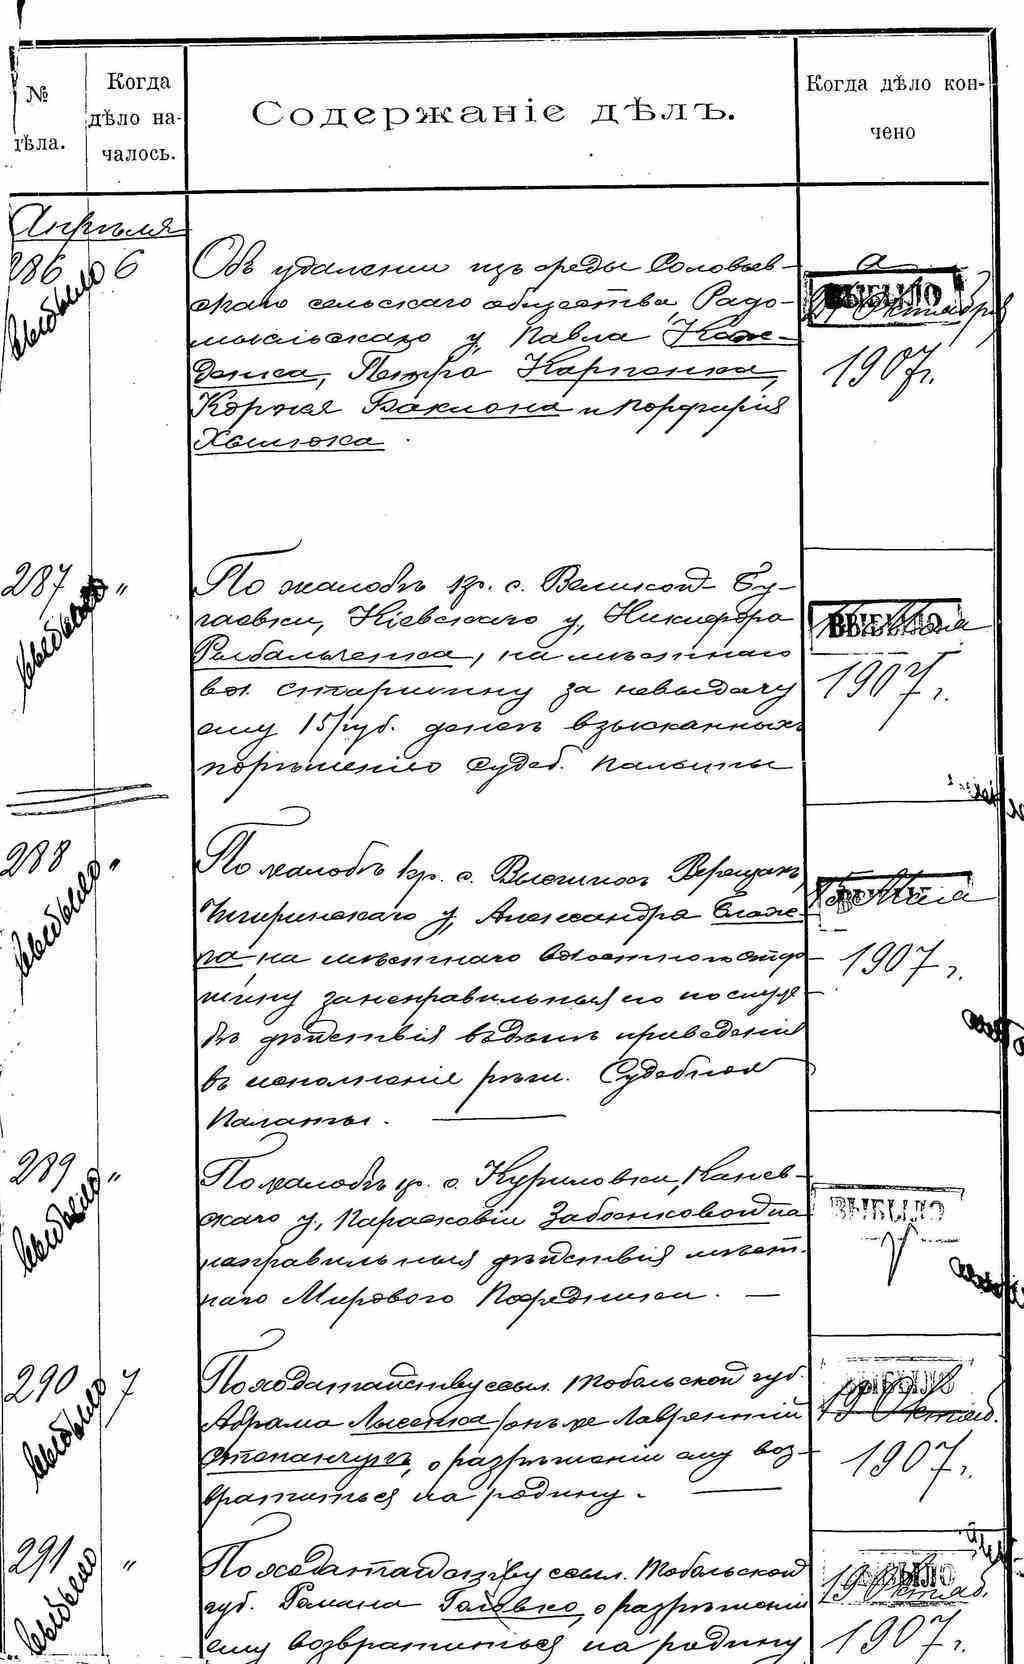 № дѣла.
Когда дѣло началось.
Содержаніе дѣлъ.
Когда дѣло кончено
Апрѣля
286 6
выбыло
Объ удаленіи изъ среды Соловьев-
скаго сельскаго общества, Радо-
мысльскаго у, Павла
Петра Карпенка,
Коржа Баклана и Порфирія
Хвилюка.
ВЫБЫЛО
Октября
1907 г.
287 "
выбыло
По жалобѣ кр. с. Великой Бу-
гаевки, Кіевскаго у, Никифора
Рыбальченка, на мѣстнаго
вол. старшину за невыдачу
ему 15 руб. денегъ взысканныхъ
по рѣшенію Судеб. Палаты
ВЫБЫЛО
1907 г.
288 "
выбыло
По жалобѣ кр. с. Верещакъ,
Чигиринскаго у, Александра
на мѣстнаго волостного стар-
шину за неправильныя его
дѣйствія приведенія
въ исполненіе рѣш. Судебной
Палаты.
Мая
1907 г.
289 "
выбыло
По жалобѣ кр. с. Куриловки, Канев-
скаго у, Параскевіи на
неправильныя дѣйствія мѣст-
наго Мирового Посредника.
ВЫБЫЛО
290 7
выбыло
По ходатайству ссыл. Тобольской губ.
Абрама Лысенка онъ же Лаврентій
Степанчукъ, о разрѣшеніи ему воз-
вратиться на родину.
ВЫБЫЛО
19 Октяб.
1907 г.
291 "
выбыло
По ходатайству ссыл. Тобольской
губ. Романа Головко, о разрѣшеніи
ему возвратиться на родину
ВЫБЫЛО
19 Октяб.
1907 г.